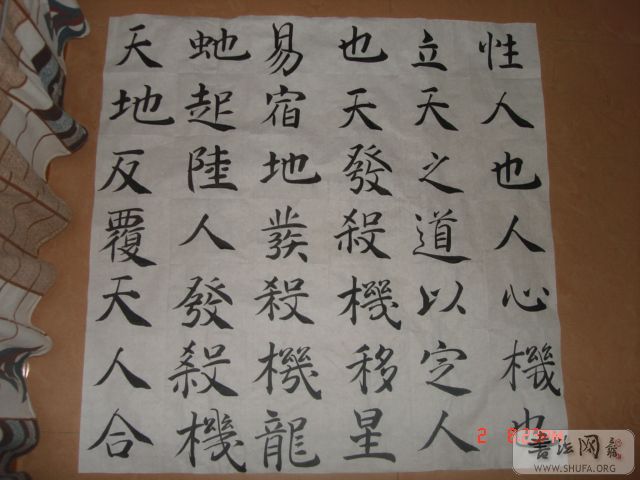 性人也人心機也
立天之道以定人
也天發殺機移星
易宿地發殺機龍
虵起陸人發殺機
天地反覆天人合
书法网
WWW.SHUFA.ORG